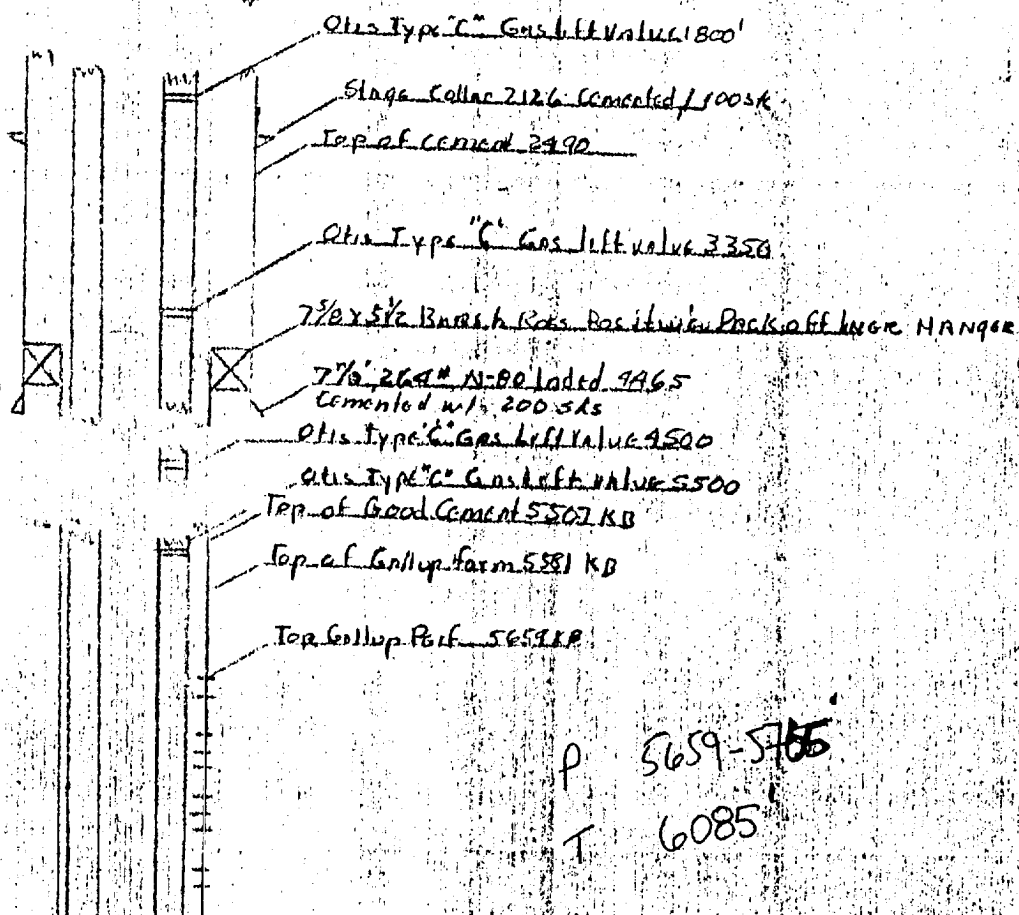 Otis Type "C" Gas lift Valve 1800'
Stage Collar 2126 Cemented / 100 sk
Top of cement 2490
Otis Type "C" Gas lift valve 3350
7 5/8 x 5 1/2 Pack off liner HANGER
7 7/8" 26.4# N-80 landed 4465
Cemented w/ 200 sks
Otis Type "C" Gas lift Valve 4500
Otis Type "C" Gas lift Valve 5500
Top of Good Cement 5507 KB
Top of Gallup form 5581 KB
Top Gallup Perf 5659 KB
P 5659-
T 6085'